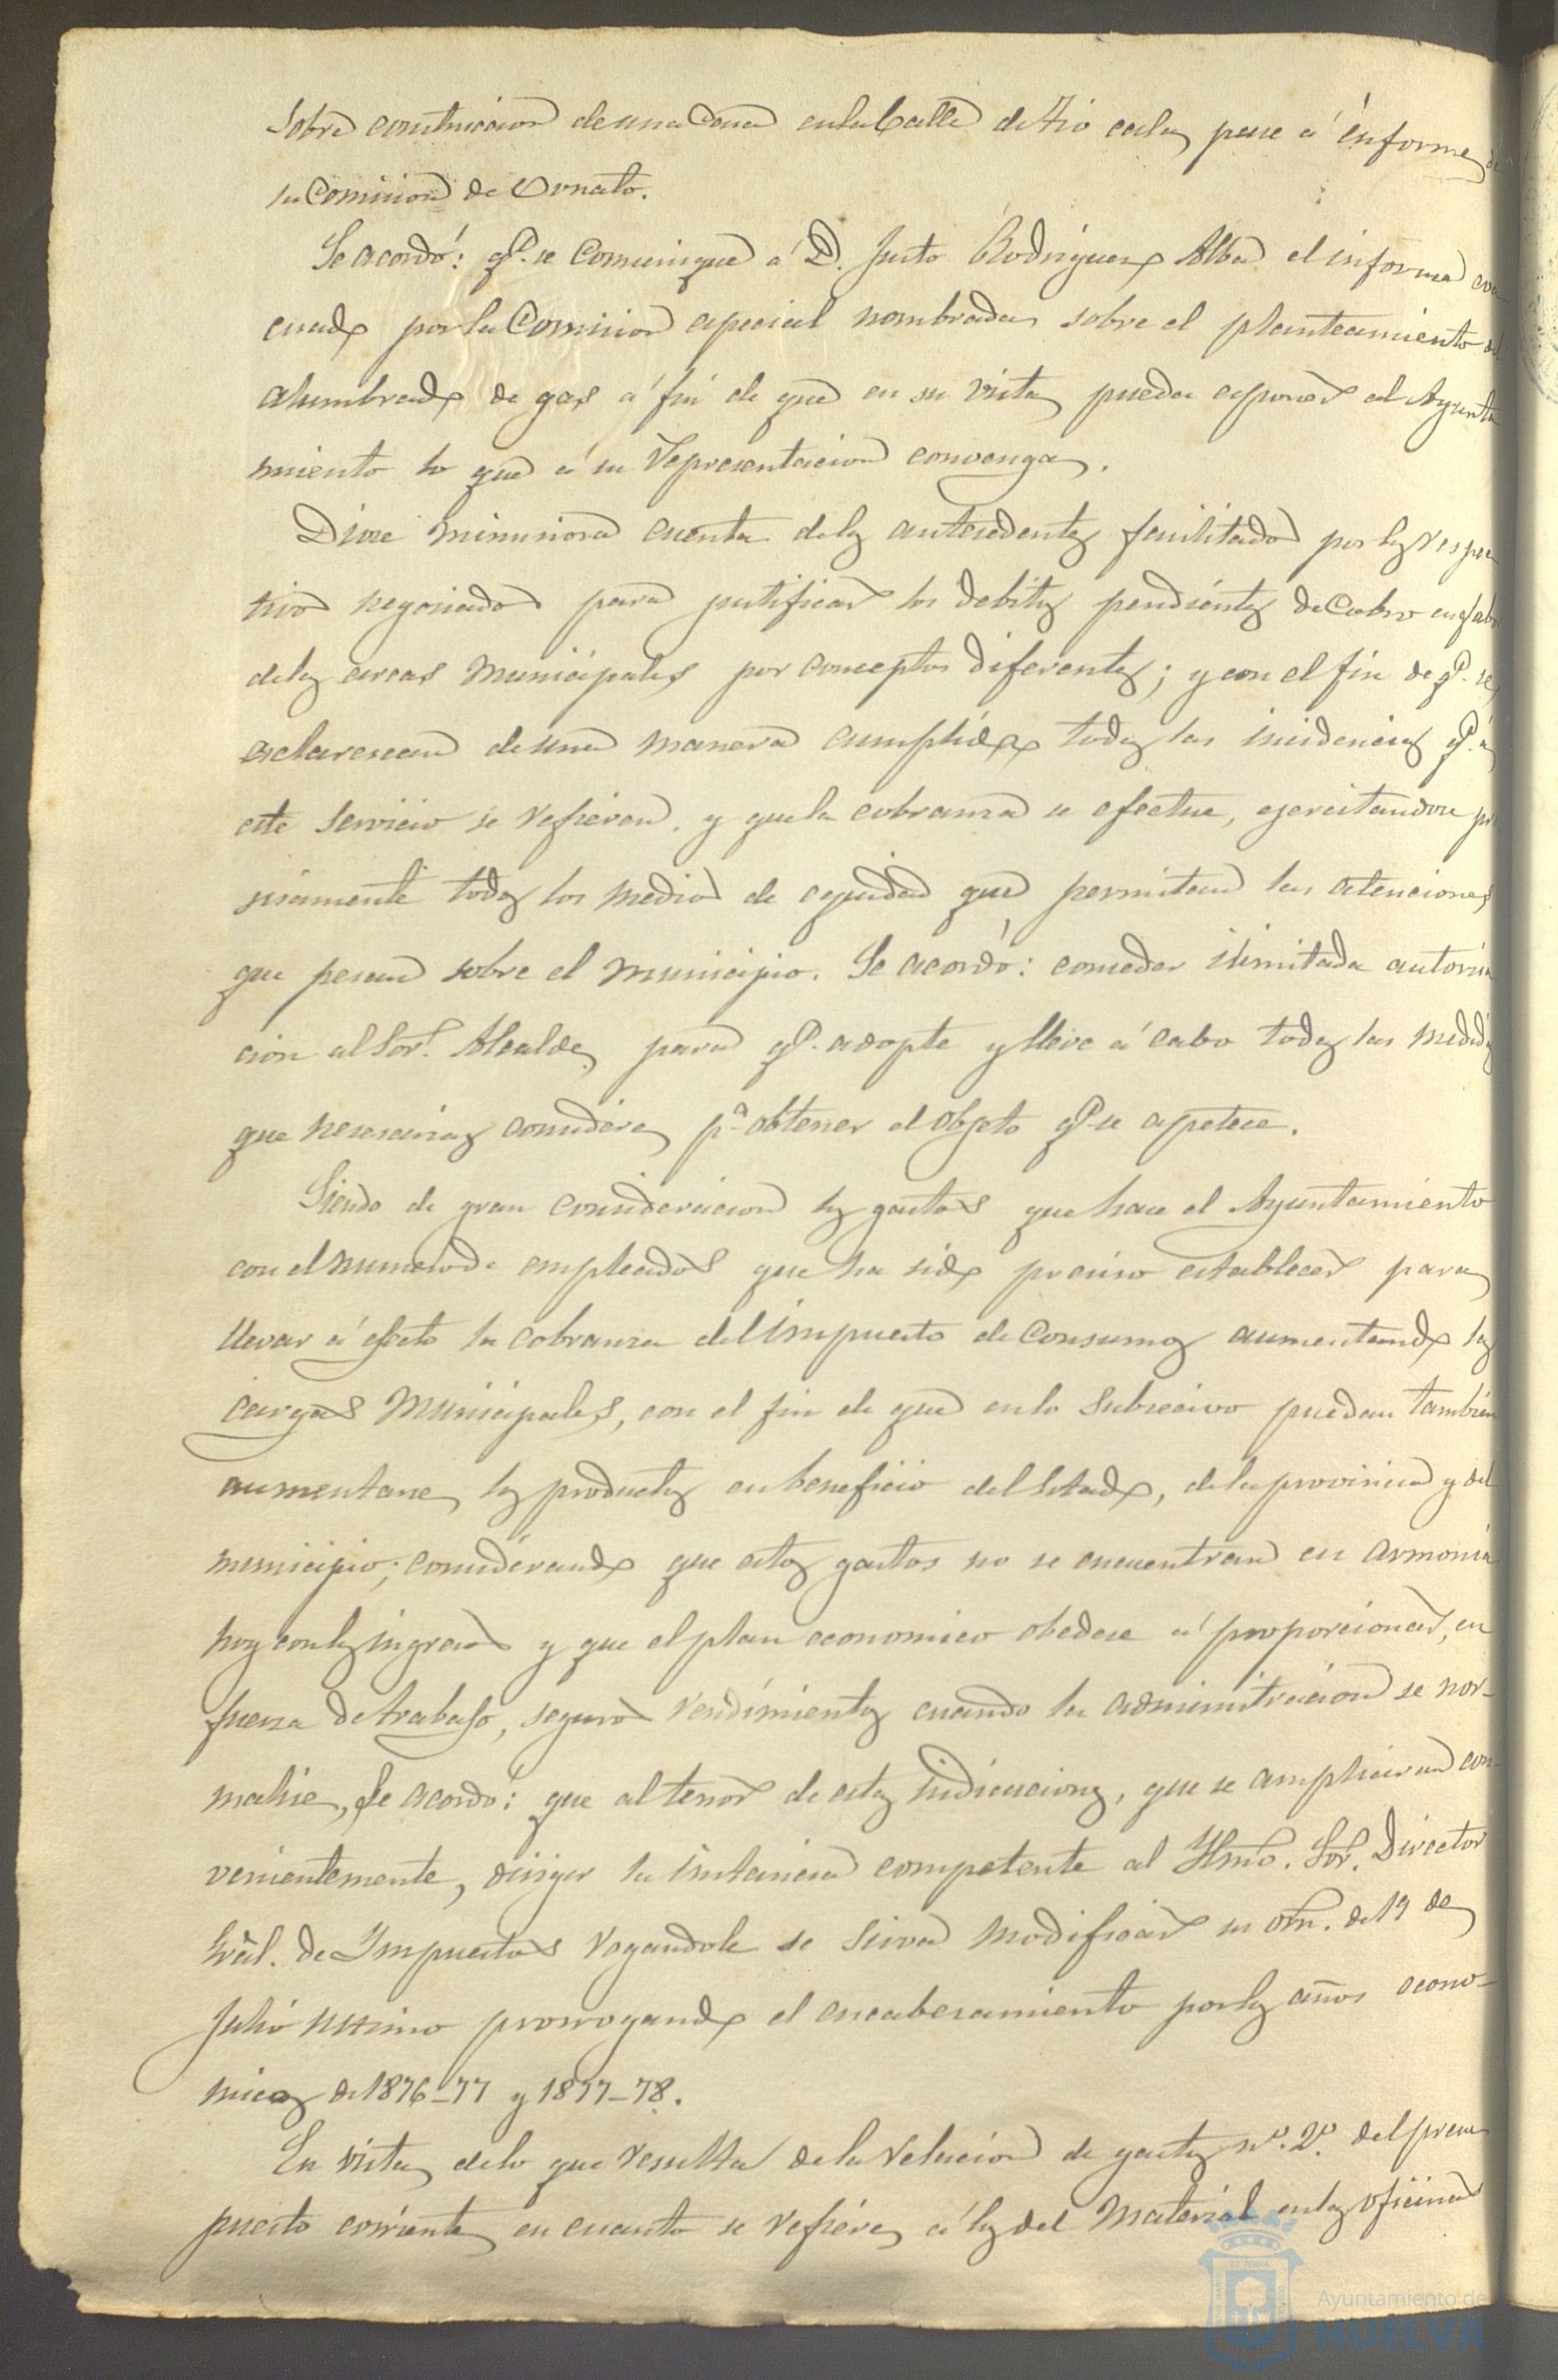 sobre construccion de una Casa en la Calle de Tio cala pase á informe de
su Comision de Ornato.
Se acordó: qe. se Comunique á D. Justo Rodriguez Alba el informe eva
cuado por la Comision especial nombrada sobre el planteamiento del
alumbrado de gas á fin de que en su vista pueda esponer al Ayunta
miento lo que á su representacion convenga.
Dióse minusiosa cuenta de los antesedentes facilitados por los respec
tivos negociados para justificar los debitos pendientes de Cobro en fabor
de las arcas Municipales por conceptos diferentes; y con el fin de qe. se
esclarescan de una manera cumplida todas las incidencias qe. á
este servicio se refieren, y que la cobranza se efectue, ejercitandose pre
sisamente todos los medios de equidad que permitan las atenciones
que pesan sobre el municipio. Se acordó: conseder ilimitada autoriza
cion al Sor. Alcalde para qe. adopte y lleve á cabo todas las medidas
que nesesarias considere pa. obtener el objeto qe. se apetece.
Siendo de gran consideracion los gastos que hace el Ayuntamiento
con el numero de empleados que ha sido preciso establecer para
llevar á efecto la cobranza del impuesto de Consumos aumentando las
cargas Municipales, con el fin de que en lo subsecivo puedan tambien
aumentarse los productos en beneficio del Estado, de la provincia y del
municipio; considerando que estos gastos no se encuentran en armonia
hoy con los ingresos y que el plan economico obedece á proporcionar, en
fuerza de trabajo, seguros rendimientos cuando la administracion se nor-
malise, Se acordó: que al tenor de estas indicaciones, que se ampliaran con-
venientemente, dirijir la instancia competente al Iltmo. Sor. Director
Gral. de Impuestos rogandole se sirva modificar su orn. de 19 de
Julio ultimo prorrogando el encabesamiento por los años econo-
micos de 1876-77 y 1877-78.
En vista de lo que resulta de la relacion de gastos nº. 2º. del presu
puesto corriente en cuanto se refiere á los del Material en las oficinas
Ayuntamiento de
HUELVA